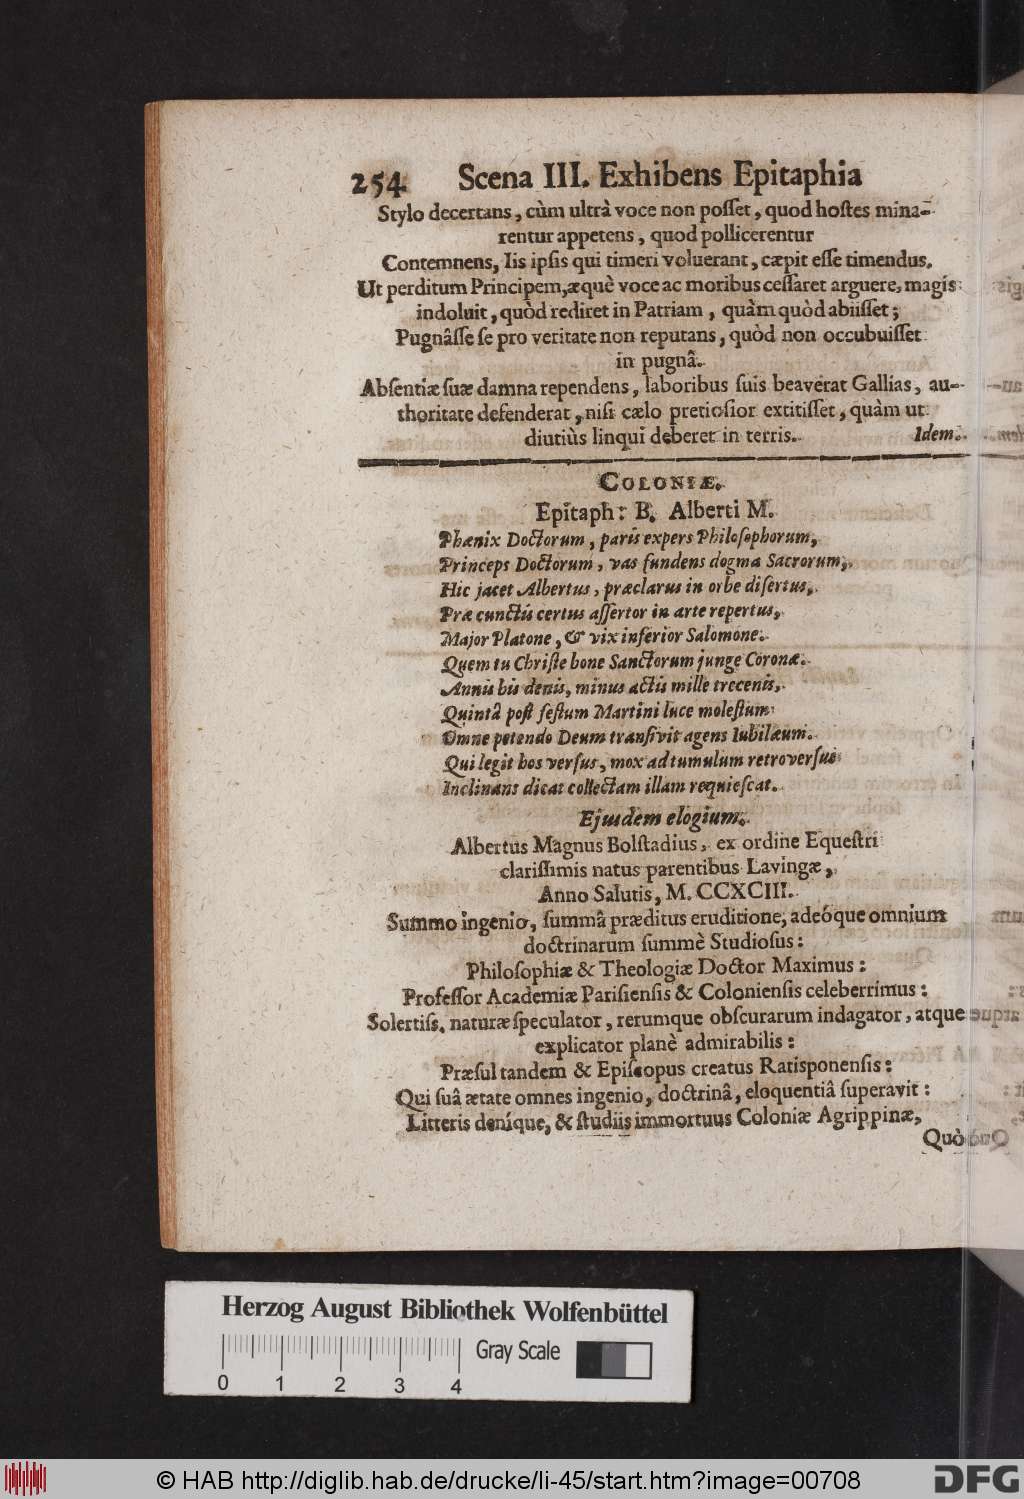 254 Scena III. Exhibens Epitaphia
Stylo decertans, cùm ultrà voce non posſet, quod hoſtes mina-
rentur appetens, quod pollicerentur
Contemnens, Iis ipſis qui timeri voluerant, cæpit eſſe timendus.
Ut perditum Principem, æquè voce ac moribus ceſſaret arguere, magis
indoluit, quòd rediret in Patriam, quàm quòd abiiſſet;
Pugnâſſe ſe pro veritate non reputans, quòd non occubuiſſet
in pugnâ.
Abſentiæ ſuæ damna rependens, laboribus ſuis beaverat Gallias, au-
thoritate defenderat, niſi cælo pretioſior extitiſſet, quàm ut
diutiùs linqui deberet in terris. Idem.
COLONIÆ.
Epitaph: B. Alberti M.
Phœnix Doctorum, paris expers Philoſophorum,
Princeps Doctorum, vas fundens dogma Sacrorum,
Hic jacet Albertus, præclarus in orbe diſertus,
Præ cunctis certus aſſertor in arte repertus,
Major Platone, & vix inferior Salomone.
Quem tu Chriſte bone Sanctorum junge Coronæ.
Annis bis denis, minus actis mille trecenis,
Quintâ poſt feſtum Martini luce moleſtum
Omne petendo Deum tranſivit agens Iubilæum.
Qui legit hos verſus, mox ad tumulum retroverſus
Inclinans dicat collectam illam requieſcat.
Ejusdem elogium.
Albertus Magnus Bolſtadius, ex ordine Equeſtri
clariſſimis natus parentibus Lavingæ,
Anno Salutis, M. CCXCIII.
Summo ingenio, ſummâ præditus eruditione, adeóque omnium
doctrinarum ſummè Studioſus:
Philoſophiæ & Theologiæ Doctor Maximus:
Profeſſor Academiæ Pariſienſis & Colonienſis celeberrimus:
Solertiſs. naturæ ſpeculator, rerumque obſcurarum indagator, atque
explicator planè admirabilis:
Præſul tandem & Epiſcopus creatus Ratisponenſis:
Qui ſuâ ætate omnes ingenio, doctrinâ, eloquentiâ ſuperavit:
Litteris deníque, & ſtudiis immortuus Coloniæ Agrippinæ,
Quò
Herzog August Bibliothek Wolfenbüttel
Gray Scale
0 1 2 3 4
© HAB http://diglib.hab.de/drucke/li-45/start.htm?image=00708
DFG